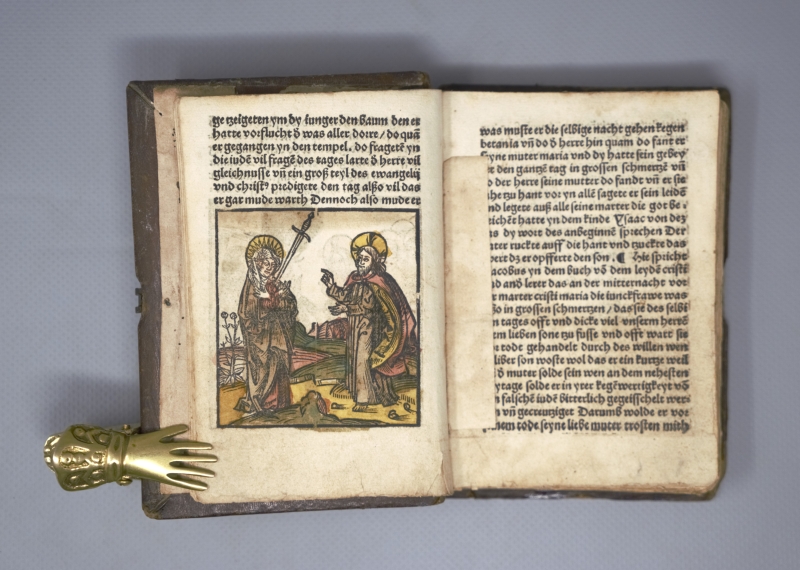 ge tzeigeten ym dy iunger den baum den er
hatte vorflucht d̄ was aller dorre / do quā
er gegangen yn den tempel. do fragetē yn
die iudē vil fragē des tages larte d̄ herre vil
gleichnusse vñ ein groß teyl des ewangelij
vnd christ9 predigete den tag alßo vil das
er gar mude warth Dennoch also mude er
was muste er die selbige nacht gehen kegen
betania vñ do d̄ herre hin quam do fant er
seyne muter maria vnd dy hatte sein gebey
der den gantzē tag in grossen schmertzē vñ
do der herre seine mutter do fandt vñ er sie
tzu hant vor yn allē sagete er sein leidē
vnd legete auß alle seine marter die got be
richtēt hatte yn dem kinde Ysaac von dez
dy wort des anbeginnē sprechen Der
ter ruckte auff die hant vnd zuckte das
dz er opfferte den son. ¶ Hie spricht
acobus yn dem buch vō dem leydē cristi
anď lerer das an der mitternacht vor
marter cristi maria die iunckfrawe was
in grossen schmertzen / das sie des selbi
tages offt vnd dicke viel vnserm herrē
lieben sone tzu fusse vnd offt watt sie
tode gehandelt durch des willen wen
liber son woste wol das er ein kurtze weil
d̄ muter solde sein wen an dem nehesten
ytage solde er in yrer kegēwertigkeyt vō
falschē iudē bitterlich gegeisschelt wer
vñ gecreutziget Darumb wolde er vor
tode seyne liebe muter trosten mith